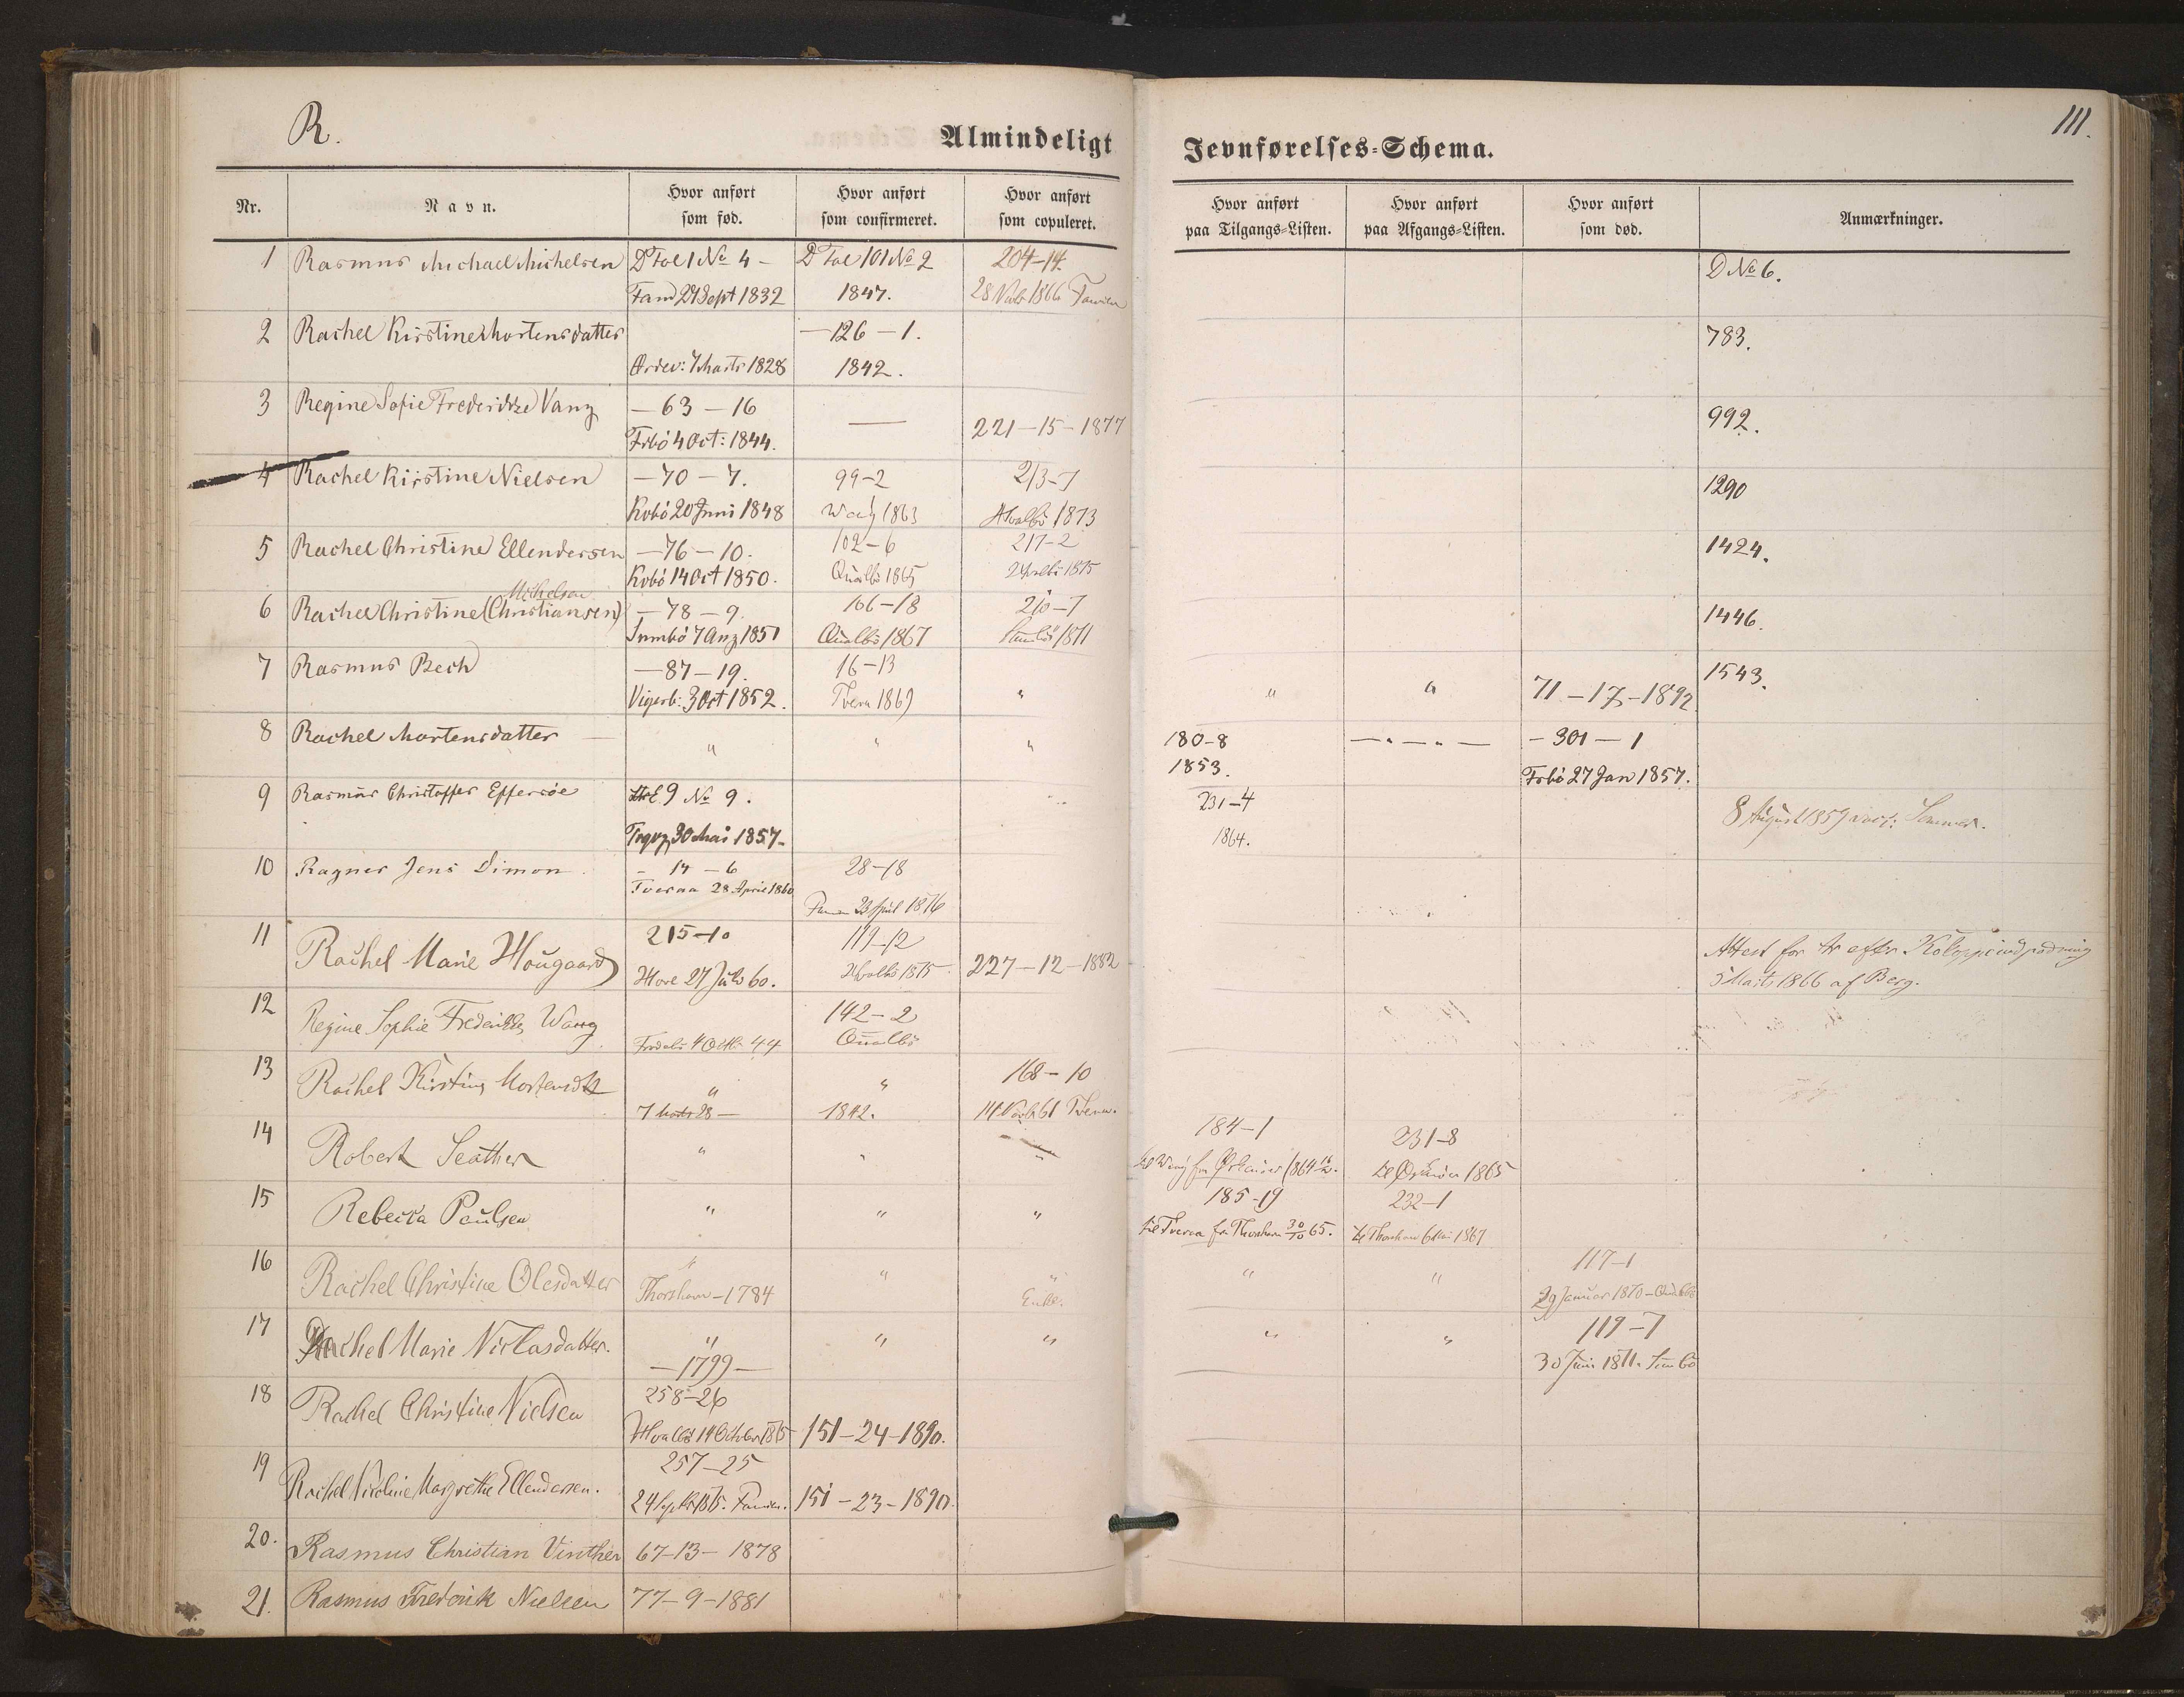 R.
111.
Almindeligt Jevnførelses-Schema.
Nr. Navn. Hvor anført som fød. Hvor anført som confirmeret. Hvor anført som copuleret. Hvor anført paa Tilgangs-Listen. Hvor anført paa Afgangs-Listen. Hvor anført som død. Anmærkninger.
1 Rasmus Michael Michelsen D Fol 1 No 4 - D Fol 101 No 2 204-14 D No 6.
Fam 24 Sept 1832 1847. 28 1866
2 Rachel Kirstine Mortensdatter - 126 - 1. 783.
Ordev: 7 Marts 1828 1842.
3 Regine Sofie Frederikke Vang - 63 - 16 — 221-15-1877 992.
Frbö 4 Oct: 1844.
4 Rachel Kirstine Nielsen - 70 - 7. 99-2 213-7 1290
Kvbö 20 Juni 1848 Waag 1863 Hvalbö 1873
5 Rachel Christine Ellendersen - 76 - 10. 102-6 217-2 1424.
Kvbö 14 Oct 1850. Qualbö 1865 Hvalbö 1875
Michelsen
6 Rachel Christine (Christiansen) - 78 - 9. 106-18 210-7 1446.
Sumbö 7 Aug 1851 Qualbö 1867 Sumbö 1871
7 Rasmus Bech - 87 - 19. 16-13 1543.
Vigerb: 3 Oct 1852. Tveraa 1869 " " " 71-17-1892
8 Rachel Mortensdatter " " " 180-8 — " — " — - 301 - 1
1853. Frbö 27 Jan 1857.
9 Rasmus Christoffer Effersöe Litr E 9 No 9. 231-4 8 August 1859 vacc: Sommer.
Trgv, 30 Mai 1857- 1864.
10 Ragner Jens Dimon - 14 - 6 28-18
Tveraa 28 April 1860 23 April 1876
11 Rachel Marie Hougaard 215-10 119-12 227-12-1882 Attest for efter Kokoppeindpodning
Hove 27 Juli 60. Hvalbö 1875 5 Marts 1866 af Berg.
12 Regine Sophie Frederikke Wang 142-2
Frodebö 4 Octbr 44 Qualbö
13 Rachel Kirstine Mortensdtr " " 168-10
7 Marts 28 - 1842. 14 Novbr 61 Tveraa.
14 Robert Seather " " " 184-1 231-8
til Waag fra Orkenöer 1864 til Orkenöer 1865
15 Rebecca Paulsen " " " 185-19 232-1
til Tveraa fra Thorshavn 30/10 65. til Thorshavn 6 Mai 1867
16 Rachel Christine Olesdatter " " " " " 117-1
Thorshavn - 1784 Enke. 29 Januar 1870 - Qualbö
17 Rachel Marie Niclasdatter. " " " " " 119-7
- 1799 - 30 Juni 1871. Sumbö
18 Rachel Christine Nielsen 258-26
Hvalbö 14 October 1875 151-24-1890.
19 Rachel Nicoline Margrethe Ellendersen. 257-25
24 Septbr 1875. 151-23-1890.
20. Rasmus Christian Vinther 67-13-1878
21. Rasmus Frederik Nielsen 77-9-1881